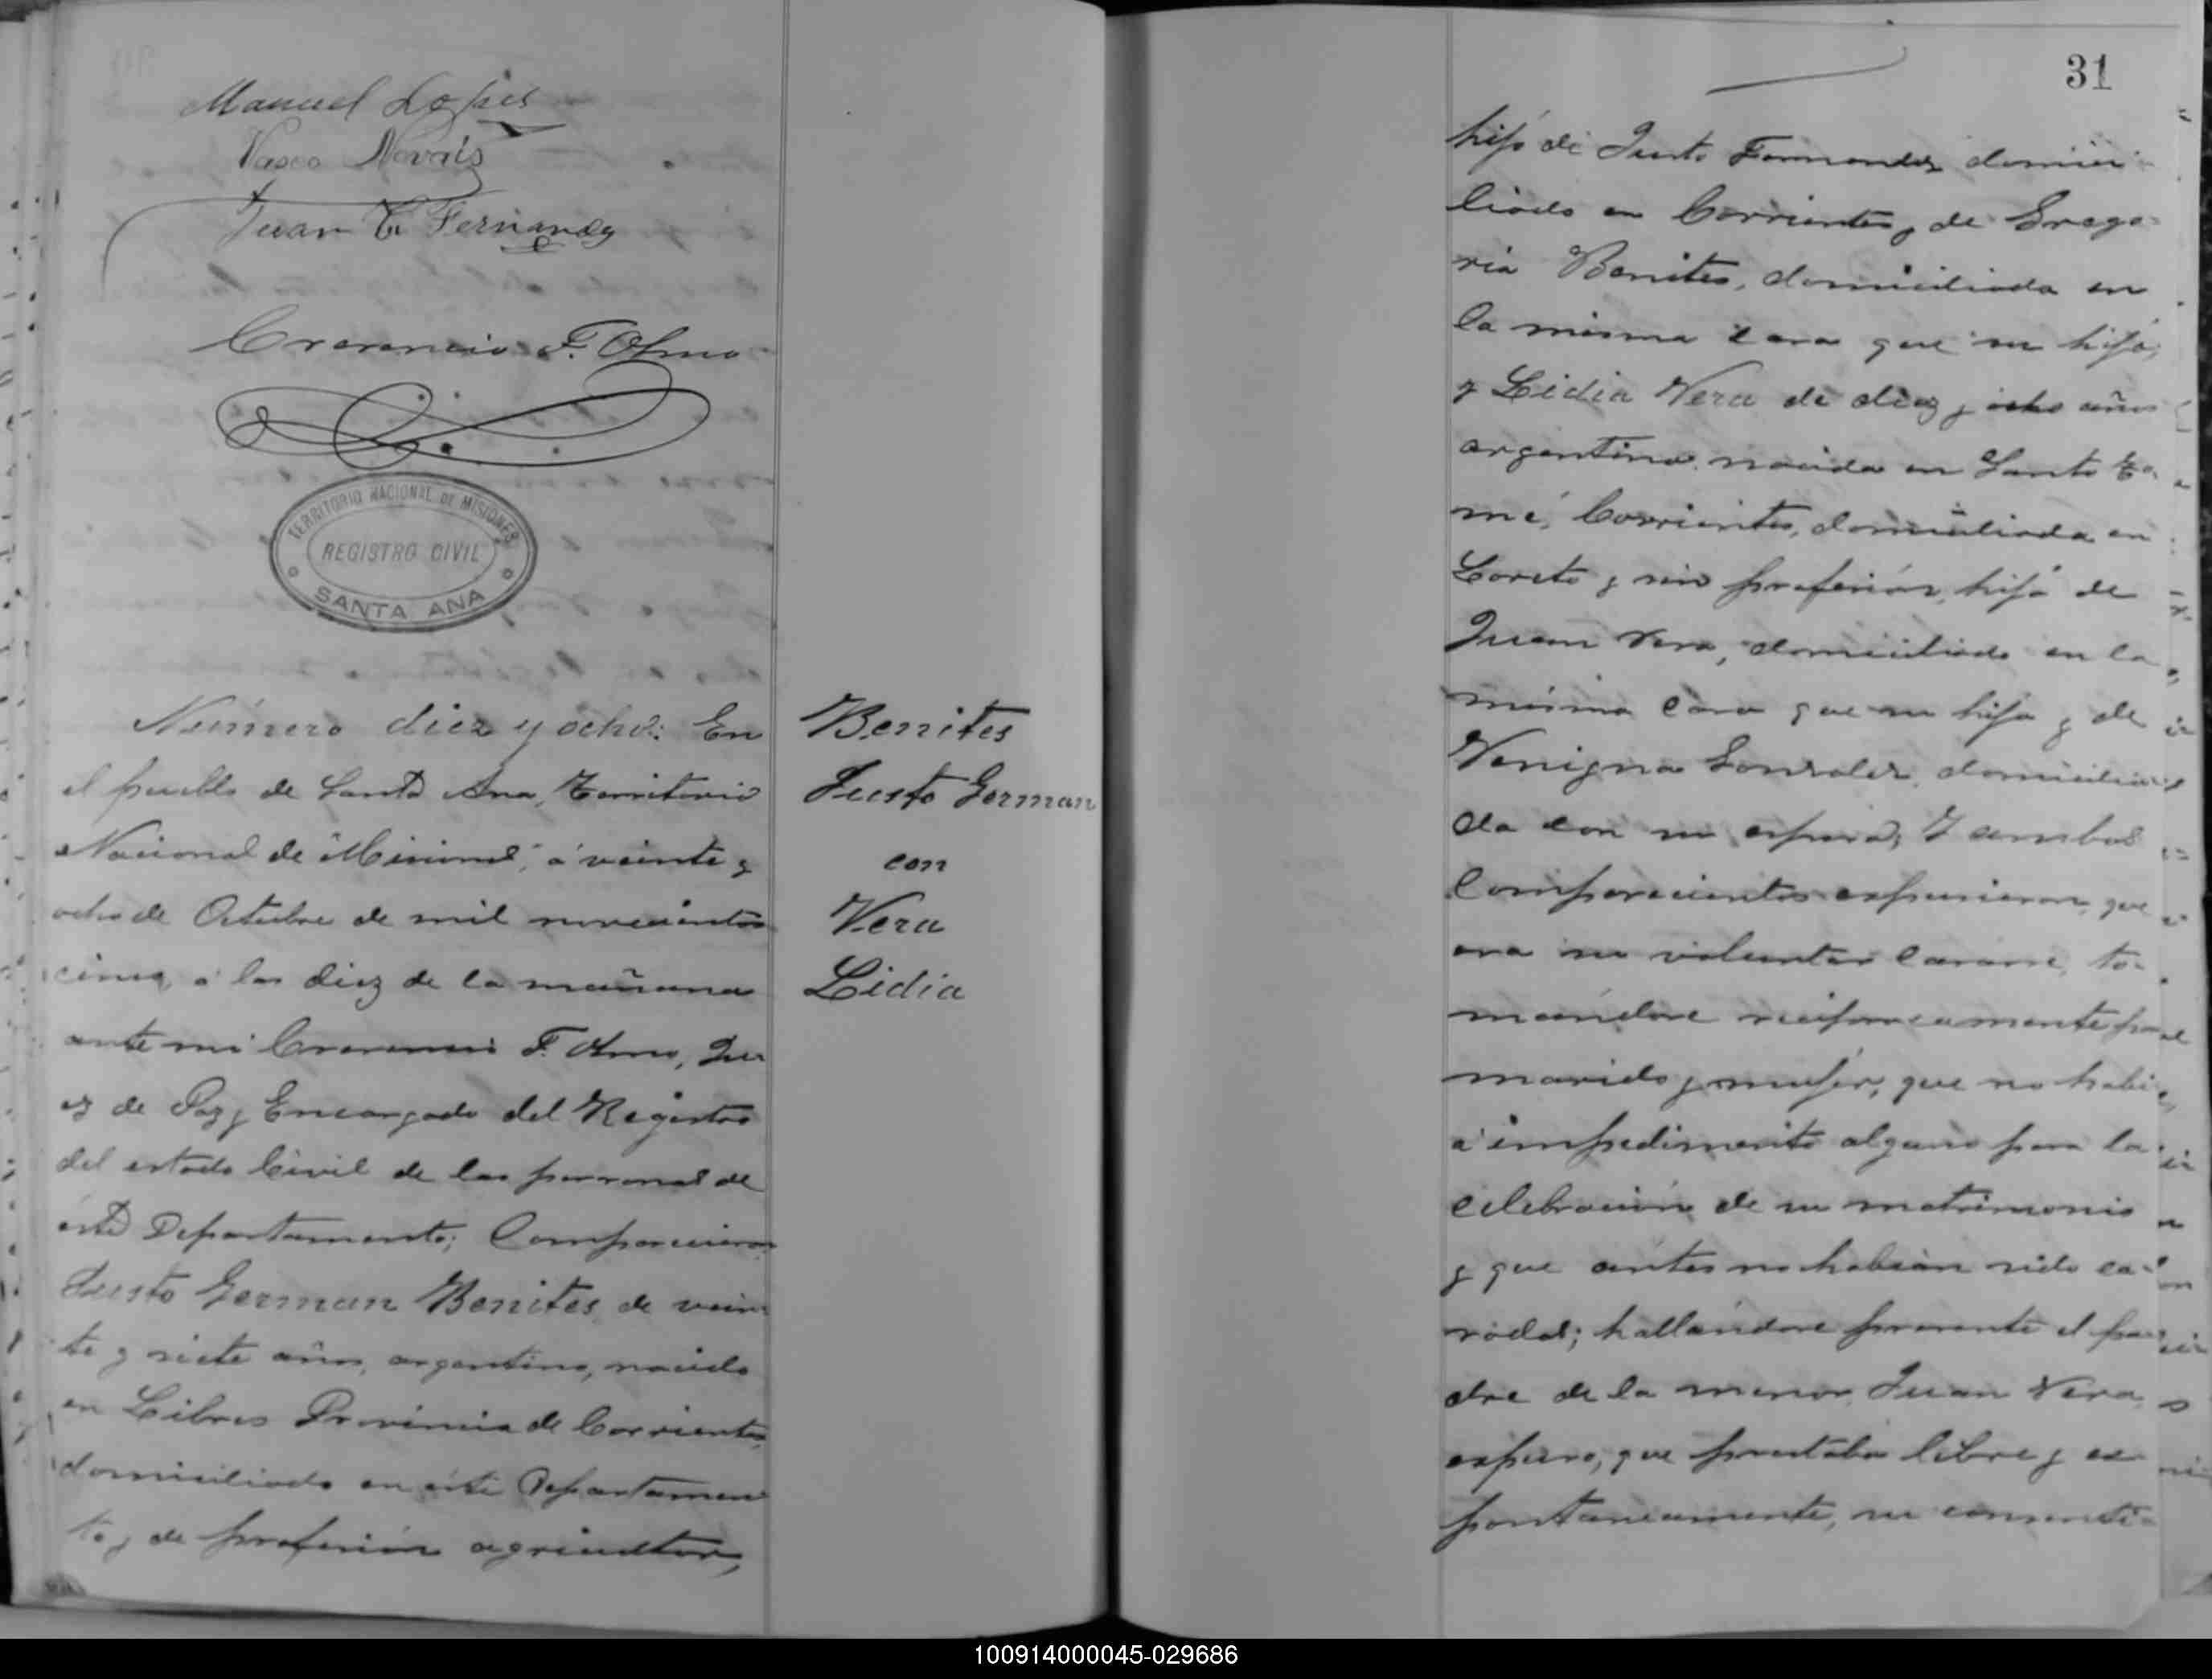 Manuel Lopes
Vasco Novais
Juan C. Fernandez
Crecencio F. Olmo
TERRITORIO NACIONAL DE MISIONES
REGISTRO CIVIL
SANTA ANA
Número diez y ocho: En
el pueblo de Santa Ana, Territorio
Nacional de Misiones, á veinte y
ocho de Octubre de mil novecientos
cinco, á las diez de la mañana
ante mi Crecencio F. Olmo, Ju
ez de Paz y Encargado del Registro
del estado Civil de las personas de
éste Departamento; Comparecieron
Justo German Benites, de vein
te y siete años, argentino, nacido
en Libres Provincia de Corrientes,
domiciliado en éste Departamen
to, de profesión agricultor,
Benites
Justo German
con
Vera
Lidia
31
hijo de Justo Fernandez domici
liado en Corrientes y de Grego
ria Benites, domiciliada en
la misma casa que su hijo;
y Lidia Vera de diez y ocho años
argentina nacida en Santo To
mé, Corrientes, domiciliada en
Loreto y sin profesión, hija de
Juan Vera, domiciliado en la
misma casa que su hija y de
Venigna Gonzalez, domicilia
da con su esposo; Y ambos
Comparecientes expusieron, que
era su voluntad casarse, to-
mándose recíprocamente por
marido y mujer, que no habi
a impedimento alguno para la
celebración de su matrimonio
y que antes no habian sido ca-
sados; hallándose presente el pa
dre de la menor Juan Vera
expuso, que prestaba libre y es
pontaneamente, su consenti-
100914000045-029686